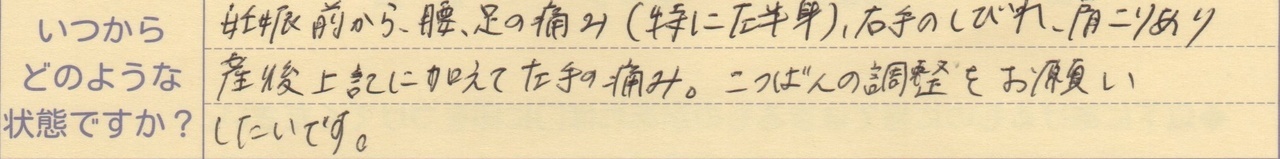 いつから
どのような
状態ですか?
妊娠前から、腰、足の痛み(特に左半身)、右手のしびれ、肩こりあり
産後上記に加えて左手の痛み。こつばんの調整をお願い
したいです。